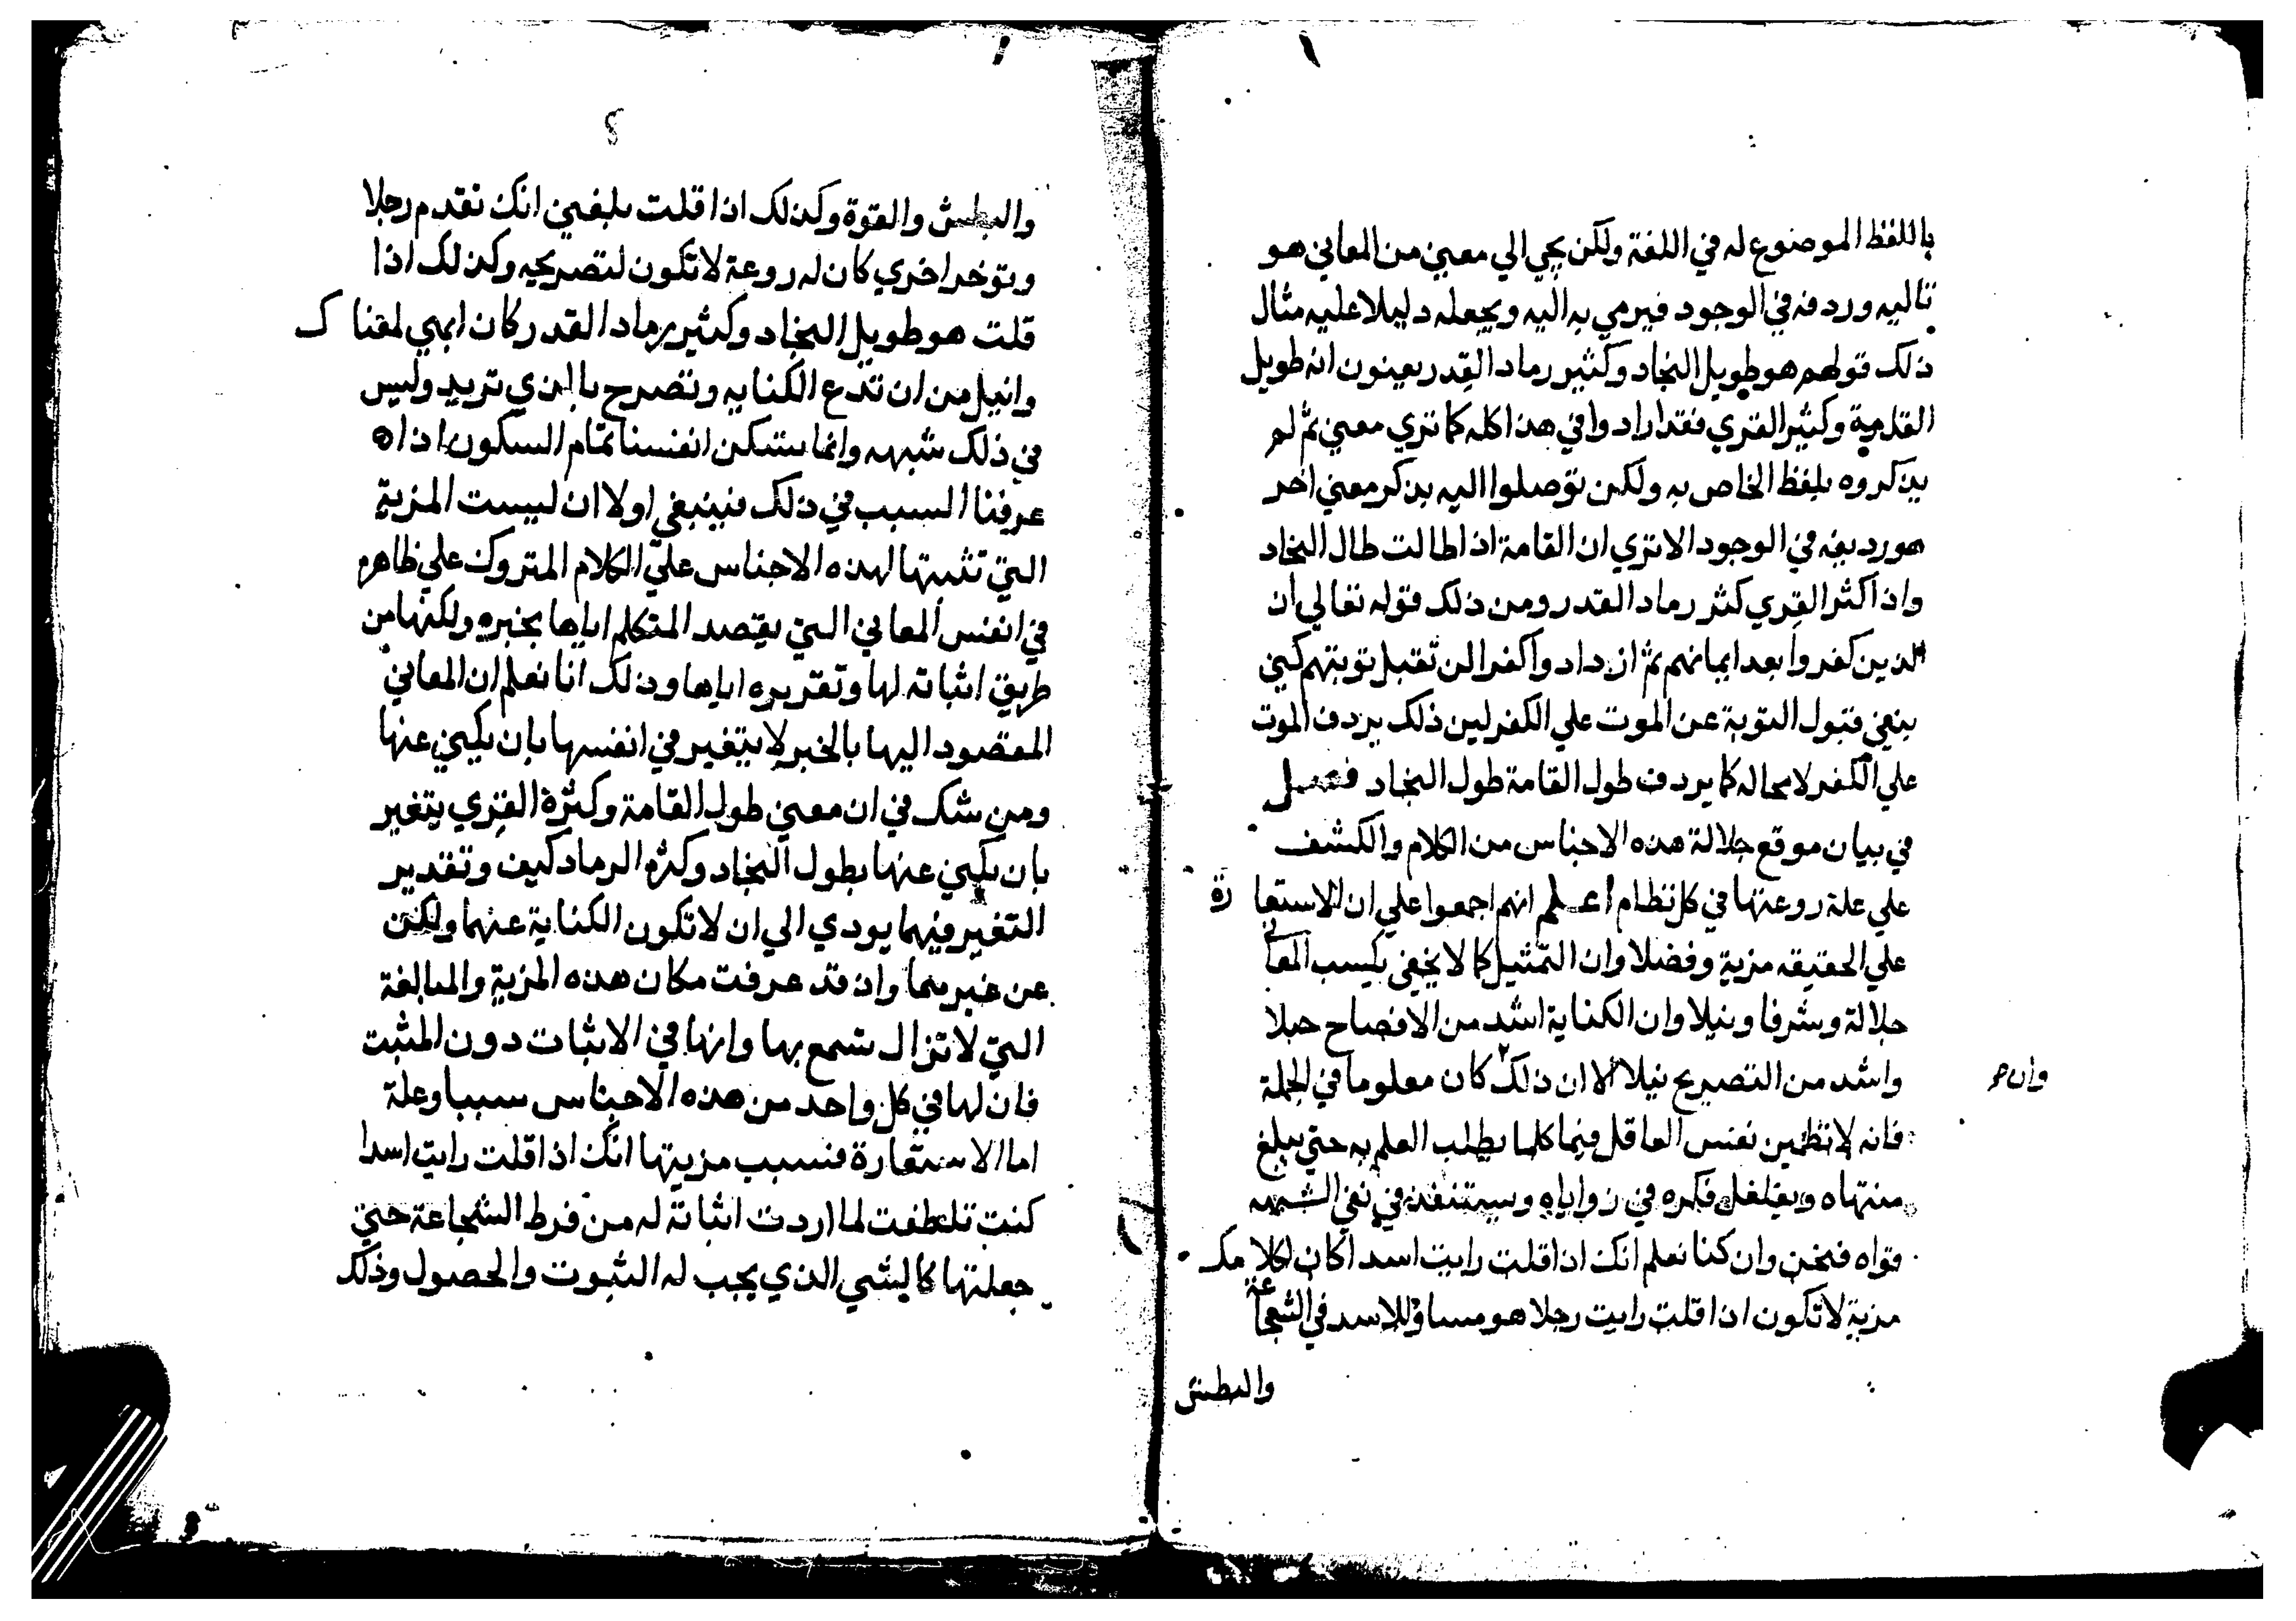 باللفظ الموضوع له في اللغة ولكن يجي الي معني من المعاني هو
تاليه وردفه في الوجود فيرمي به اليه ويجعله دليلا عليه مثال
ذلك قولهم هو طويل النجاد وكثير رماد القدر يعنون انه طويل
القامة وكثير القري فقد ارادوا في هذا كله كما تري معني ثم لم
يذكروه بلفظ الخاص به ولكن توصلوا اليه بذكر معني اخر
هو رديفه في الوجود الا تري ان القامة اذا طالت طال النجاد
واذا كثر القري كثر رماد القدر ومن ذلك قوله تعالي ان
الذين كفروا بعد ايمانهم ثم ازدادوا كفرا لن تقبل توبتهم كني
بنفي قبول التوبة عن الموت علي الكفر لين ذلك يردف الموت
علي الكفر لا محاله كما يردف طول القامة طول النجاد فصل
في بيان موقع جلالة هذه الاجناس من الكلام والكشف
علي علة روعتها في كل نظام اعلم انهم اجمعوا علي ان للاستعارة
علي الحقيقه مزية وفضلا وان التمثيل كما لا يخفي يكسب المعاني
جلالة وشرفا ونبلا وان الكناية اشد من الافصاح جلا
واشد من التصريح نبلا الا ان ذلك كان معلوما في الجملة
وان
فانه لا تطمين نفس العاقل فيما كلما يطلب العلم به حتي يبلغ
منتهاه ويغلغل فكره في زواياه ويستنفذ في نفي الشبهه
قواه فنحن وان كنا نعلم انك اذا قلت رايت اسدا كان لكلامك
مزية لا تكون اذا قلت رايت رجلا هو مساو للاسد في الشجاعة
والبطش
والبطش والقوة وكذلك اذا قلت بلغني انك تقدم رجلا
وتوخر اخري كان له روعة لا تكون لتصريحه وكذلك اذا
قلت هو طويل النجاد وكثير رماد القدر كان ابهي لمعناك
وانبل من ان تدع الكنايه وتصرح بالذي تريد وليس
في ذلك شبهه وانما تسكن انفسنا تمام السكون اذا
عرفنا السبب في ذلك فينبغي اولا ان ليست المزية
التي تثبتها لهذه الاجناس علي الكلام المتروك علي ظاهره
في انفس المعاني التي يقصد المتكلم اياها بخبره ولكنها من
طريق اثباته لها وتقريره اياها وذلك انا نعلم ان المعاني
المقصود اليها بالخبر لا يتغير في انفسها بان يكني عنها
ومن شك في ان معني طول القامة وكثرة القري يتغير
بان يكني عنها بطول النجاد وكثره الرماد كيف وتقدير
التغير فيهما يودي الي ان لا تكون الكناية عنهما ولكن
عن غيرهما واذ قد عرفت مكان هذه المزية والمبالغة
التي لا تزال تسمع بها وانها في الاثبات دون المثبت
فان لها في كل واحد من هذه الاجناس سببا وعلة
اما الاستعارة فسبب مزيتها انك اذا قلت رايت اسدا
كنت تلطفت لما اردت اثباته له من فرط الشجاعة حتي
جعلتها كالشي الذي يجب له الثبوت والحصول وذلك